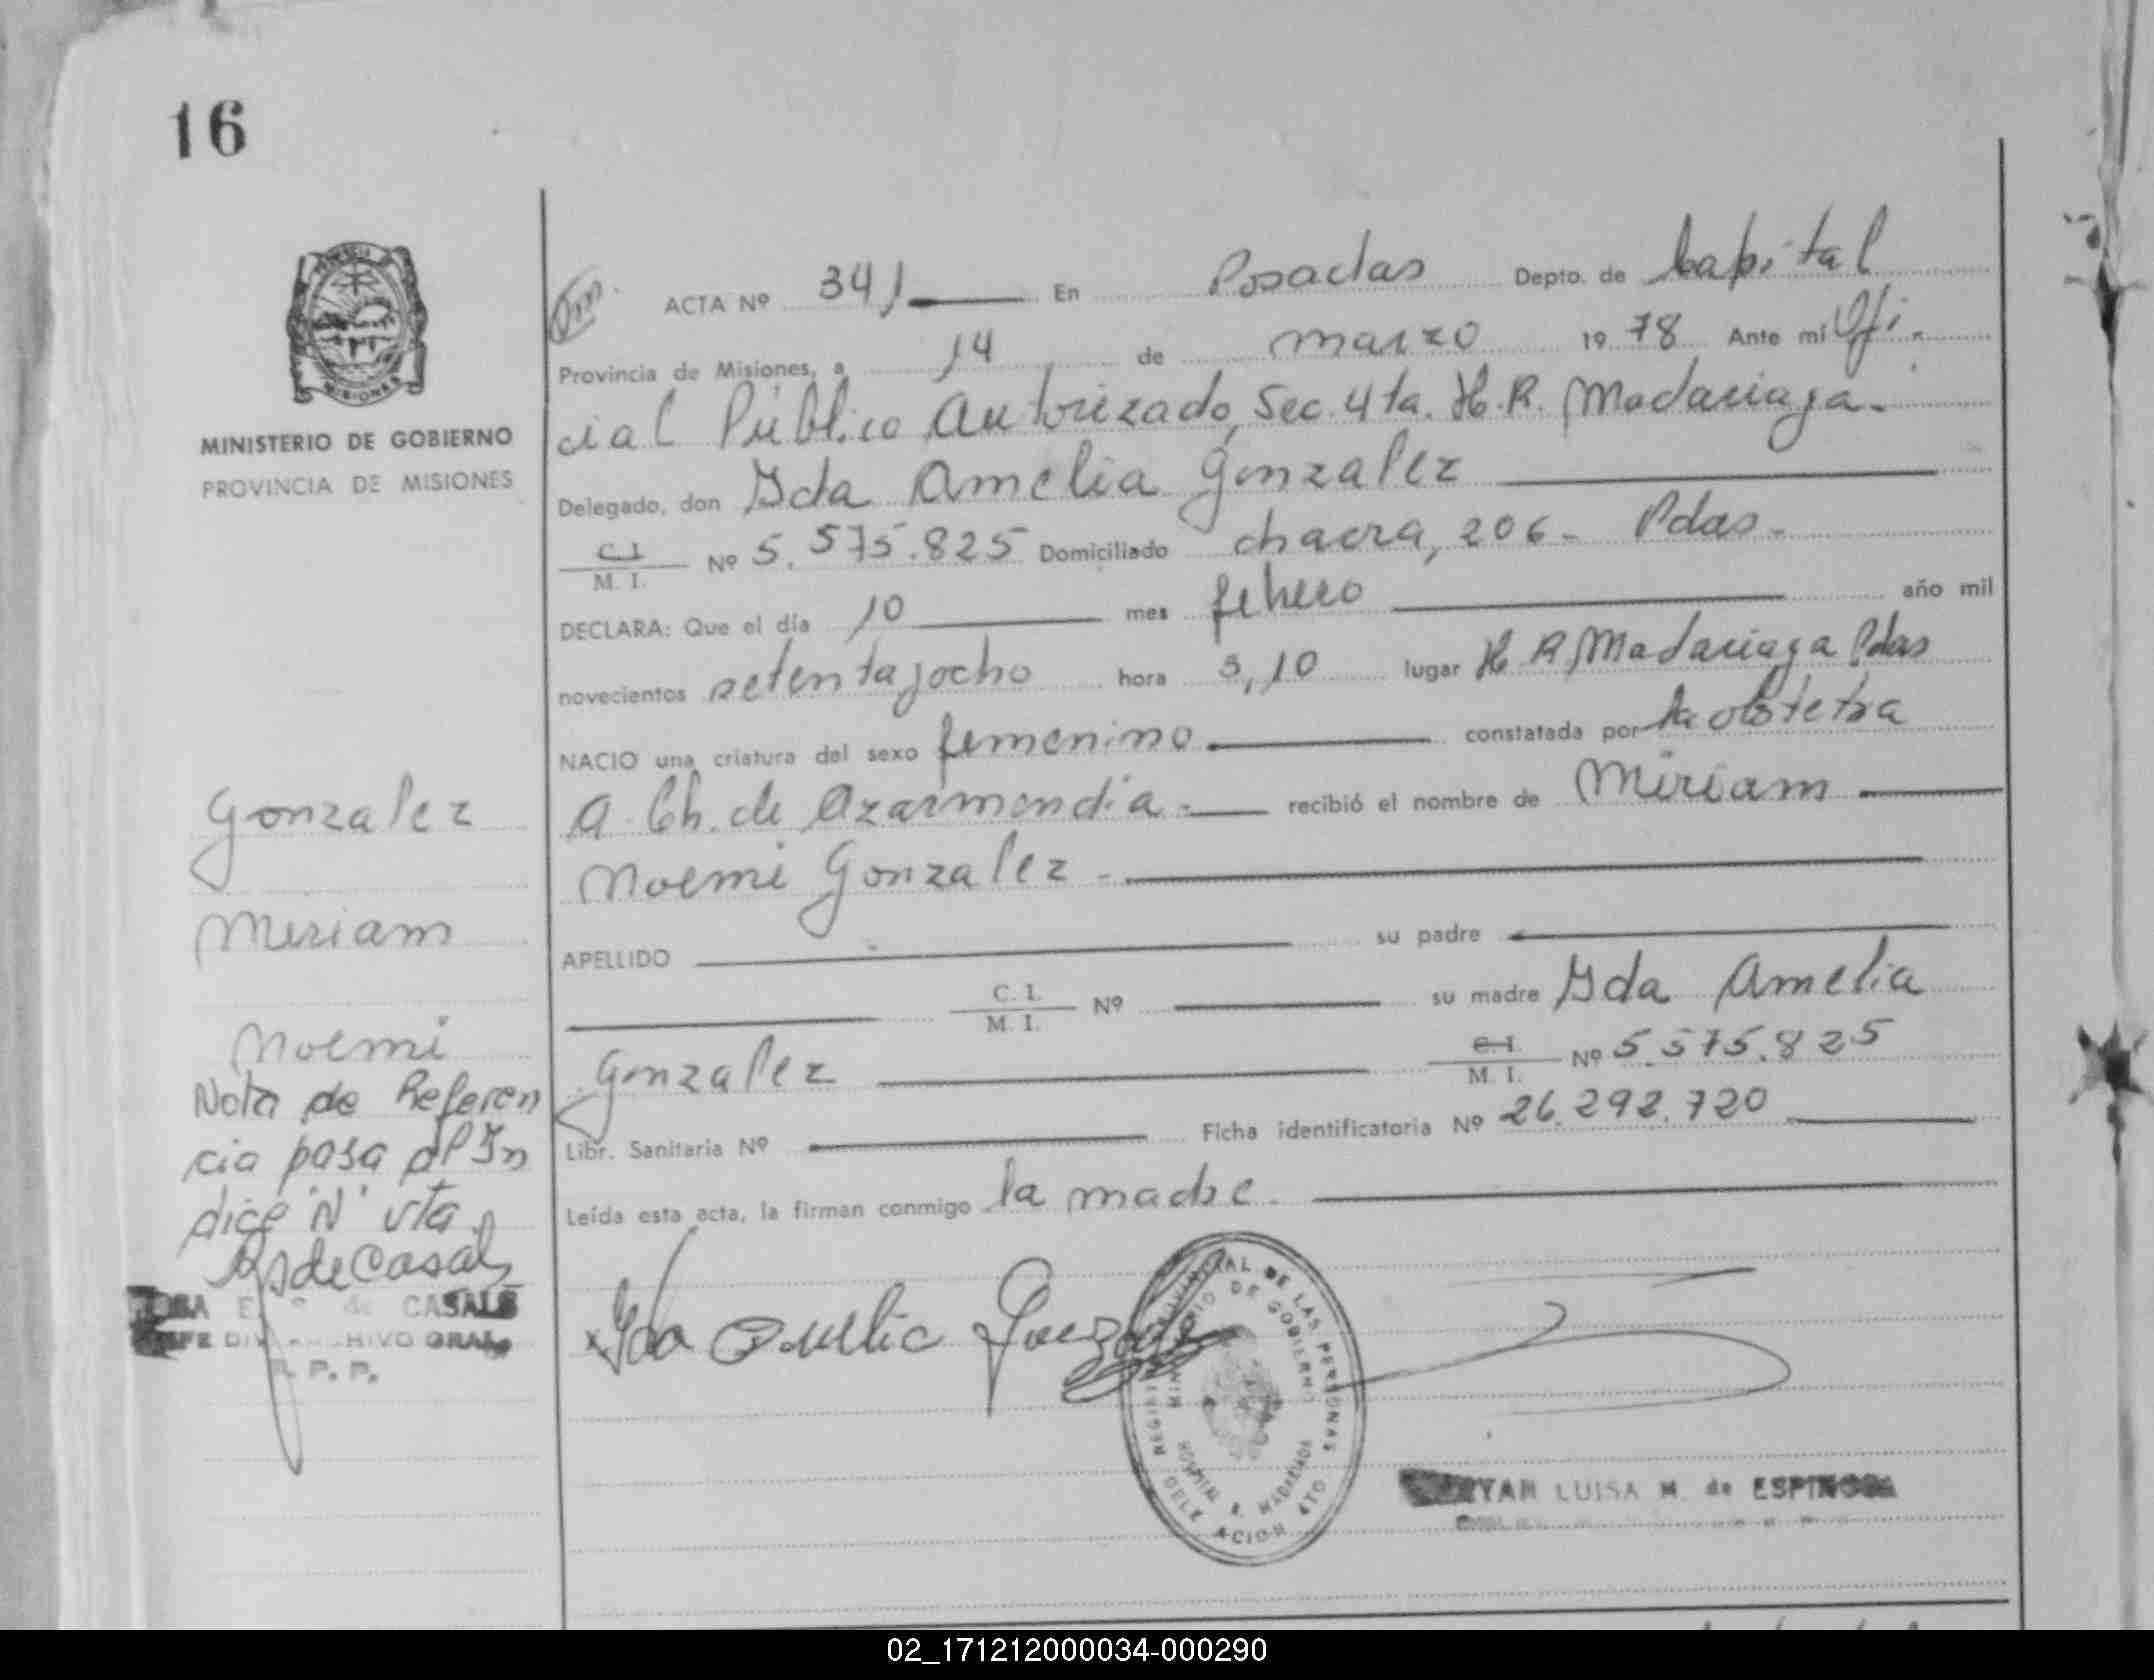 16
MINISTERIO DE GOBIERNO
PROVINCIA DE MISIONES
ACTA Nº 341 En Posadas Depto. de Capital
Provincia de Misiones, a 14 de marzo 1978 Ante mi Ofi-
cial Público Autorizado, Sec. 4ta. H. R. Madariaga.
Delegado, don Ida Amelia Gonzalez
C. I. / M. I. Nº 5.575.825 Domiciliado chacra, 206 - Pdas.
DECLARA: Que el día 10 mes febrero año mil
novecientos setentayocho hora 3,10 lugar H. R. Madariaga Pdas
NACIO una criatura del sexo femenino constatada por la obstetra
A. Ch. de Azarmendia. recibió el nombre de Miriam
Noemi Gonzalez -
APELLIDO su padre
C. I. / M. I. Nº su madre Ida Amelia
Gonzalez C. I. / M. I. Nº 5.575.825
Libr. Sanitaria Nº Ficha identificatoria Nº 26.292.720
Leída esta acta, la firman conmigo la madre.
Gonzalez
Miriam
Noemi
Nota de Referen
cia pasa al In
dice "N" vta.
de Casals
de CASALS
ARCHIVO GRAL.
R. P. P.
Ida Amelia Gonzalez
REGISTRO PROVINCIAL DE LAS PERSONAS
MINISTERIO DE GOBIERNO
HOSPITAL R. MADARIAGA
DELEGACION 4TO
LUISA M. de ESPINOSA
02_171212000034-000290